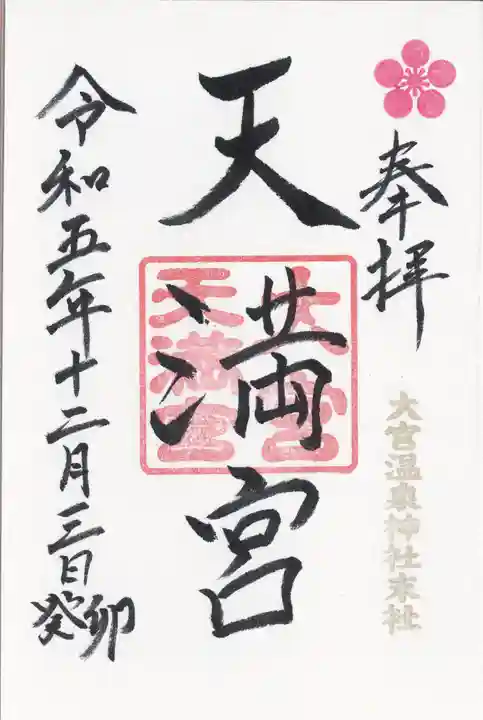 奉拝
大宮温泉神社末社
天満宮
大宮
天満宮
令和五年十二月三日癸卯